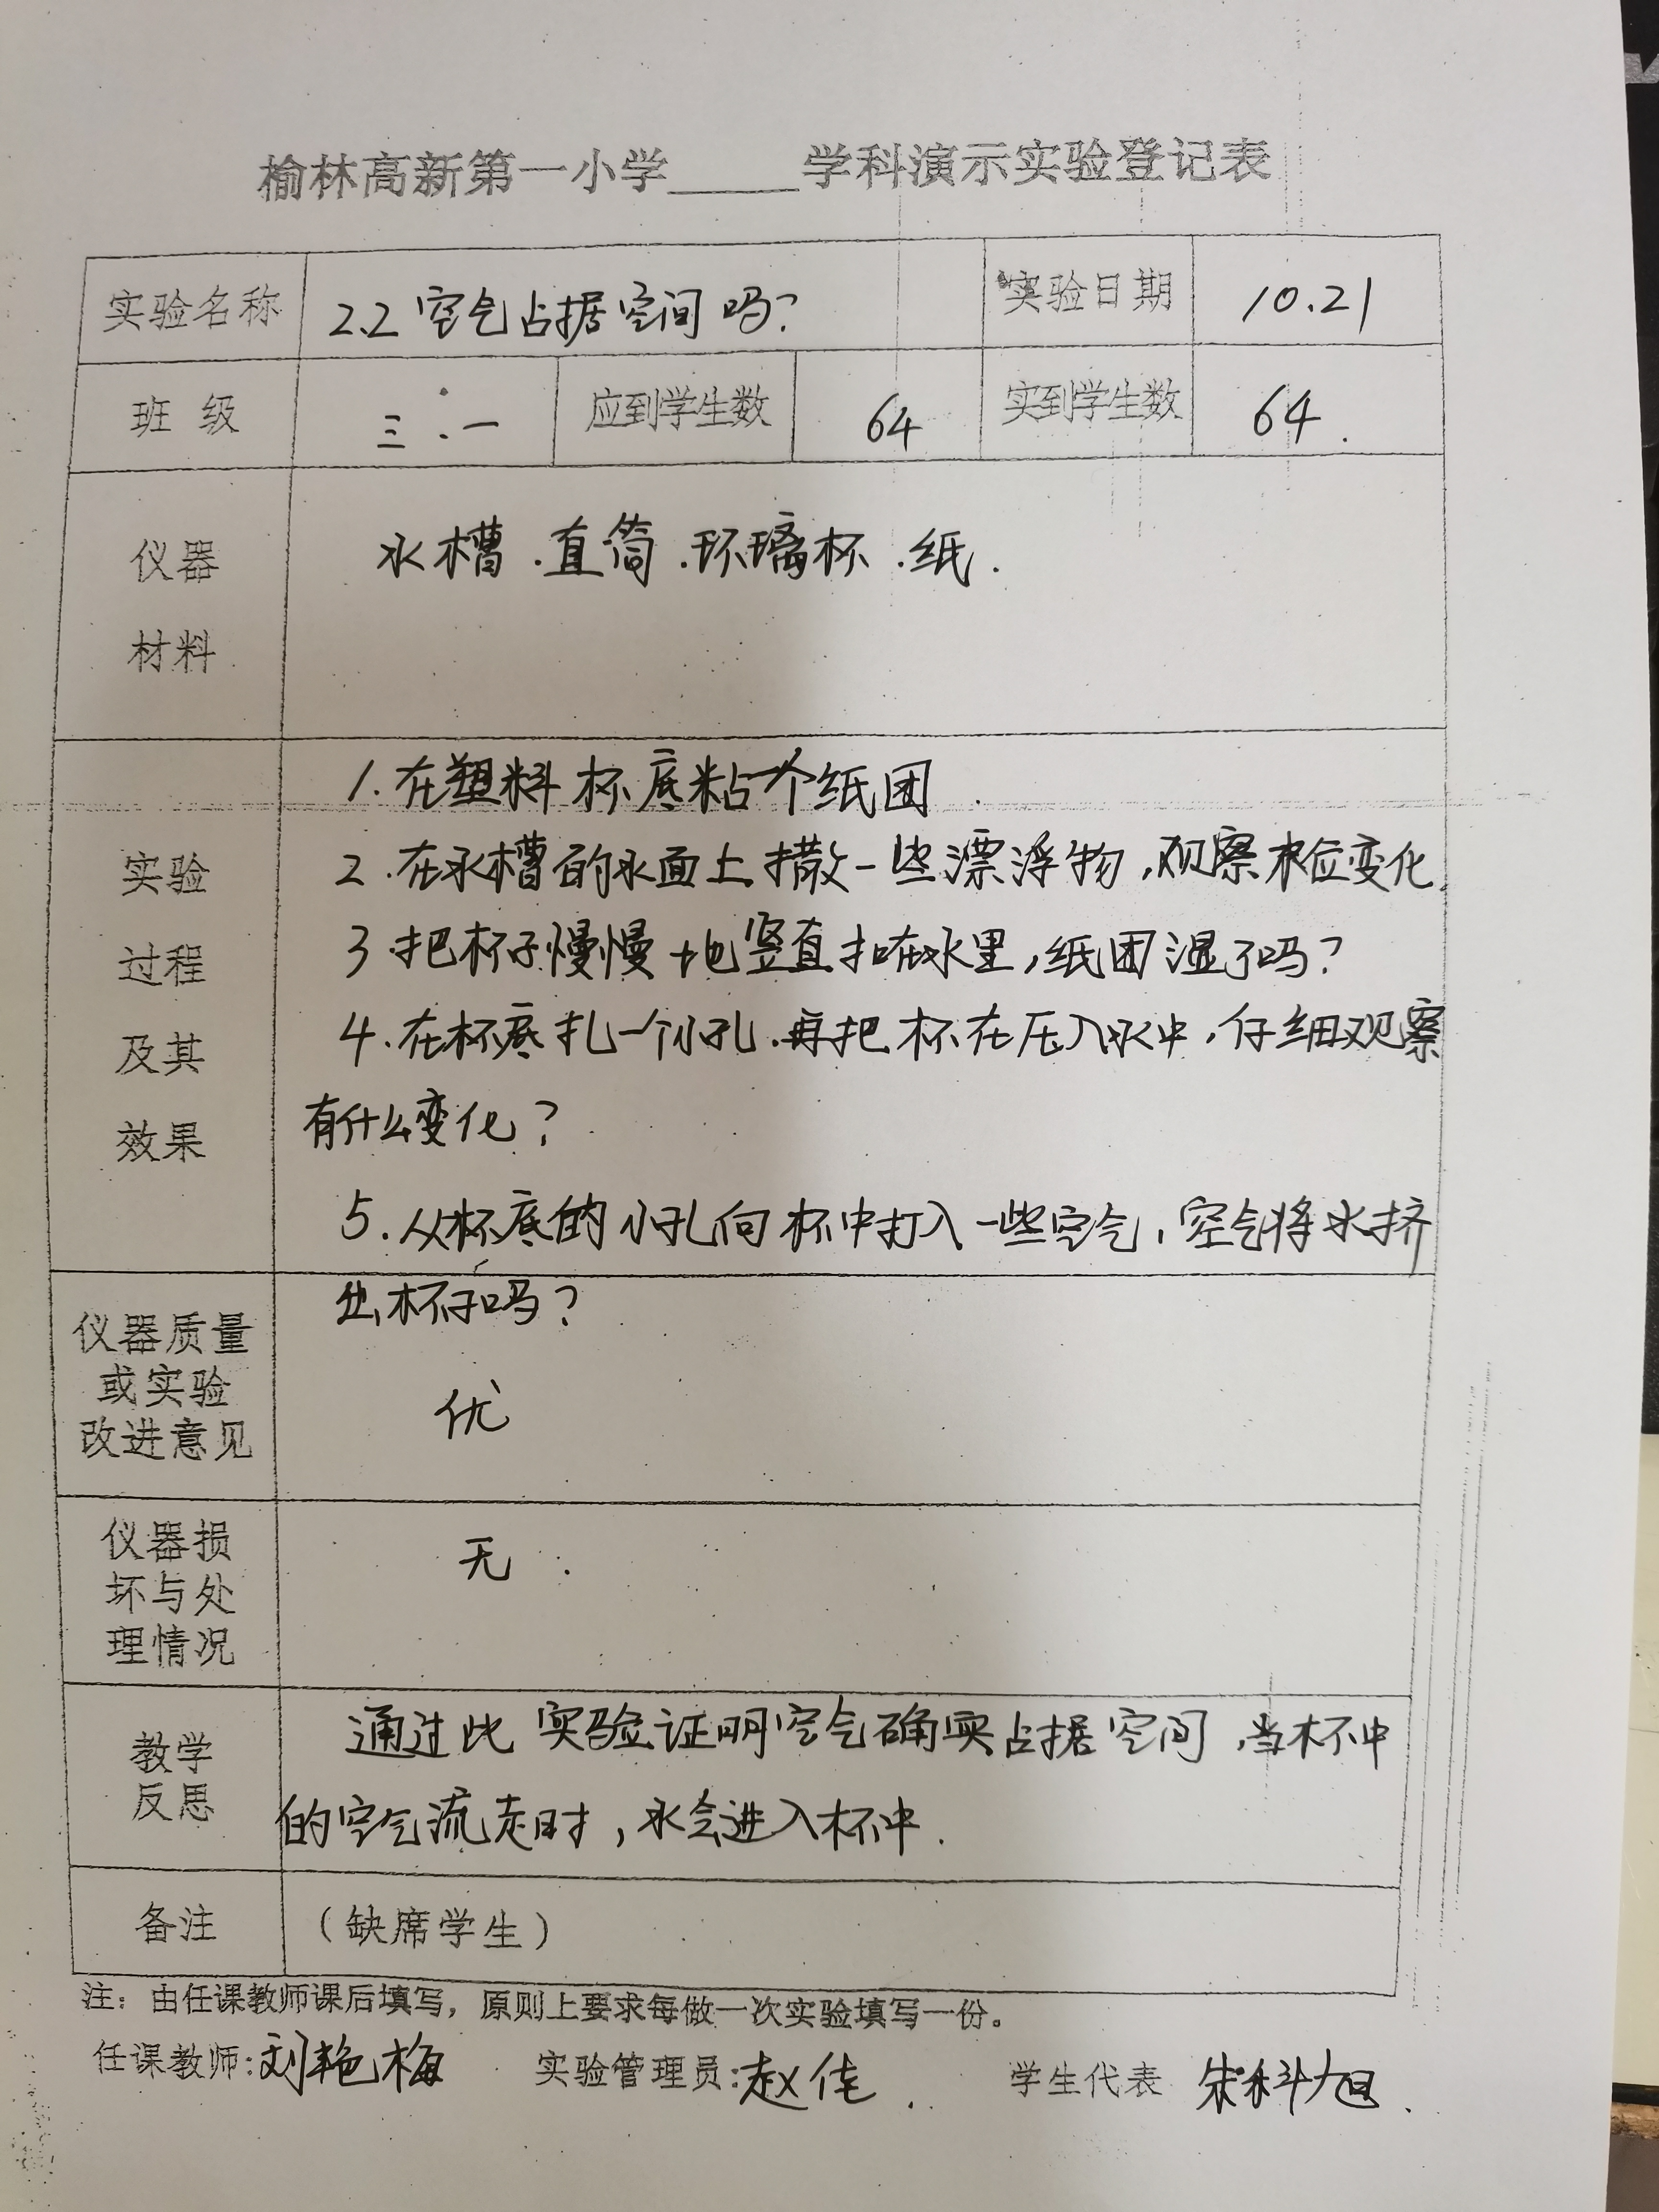 榆林高新第一小学_____学科演示实验登记表
实验名称 2.2 空气占据空间吗? 实验日期 10.21
班 级 三.一 应到学生数 64 实到学生数 64.
仪器 水槽.直筒.环璃杯.纸.
材料
1.在塑料杯底粘一个纸团
实验 2.在水槽的水面上撒一些漂浮物,观察水位变化.
过程 3.把杯子慢慢地竖直扣在水里,纸团湿了吗?
及其 4.在杯底扎一个小孔.再把杯在压入水中,仔细观察
效果 有什么变化?
5.从杯底的小孔向杯中打入一些空气,空气将水挤
出杯子吗?
仪器质量
或实验 优
改进意见
仪器损 无.
坏与处
理情况
教学 通过此实验证明空气确实占据空间,当杯中
反思 的空气流走时,水会进入杯中.
备注 (缺席学生)
注:由任课教师课后填写,原则上要求每做一次实验填写一份。
任课教师:刘艳梅 实验管理员:赵佳. 学生代表